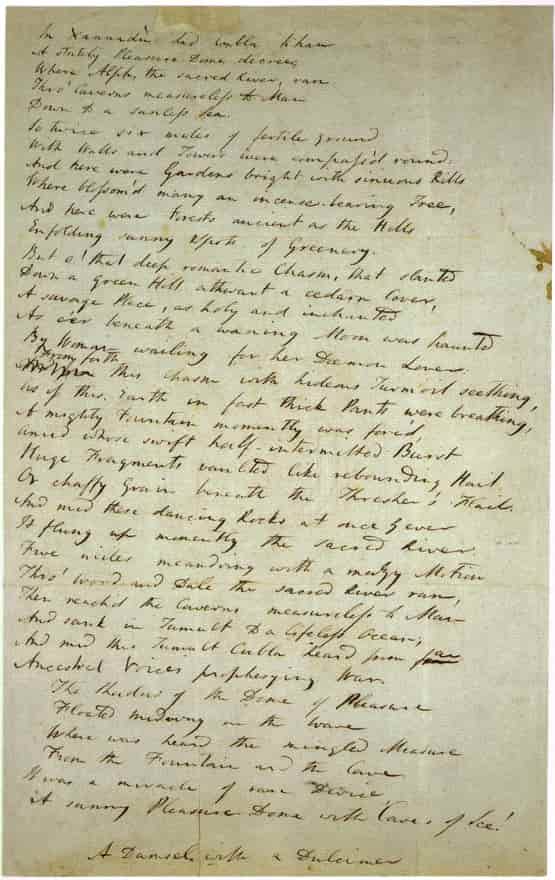 In Xannadù did Cubla Khan
A stately Pleasure Dome decree;
Where Alph, the sacred River, ran
Thro' Caverns measureless to Man
Down to a sunless Sea.
So twice six miles of fertile ground
With Walls and Towers were compass'd round:
And here were Gardens bright with sinuous Rills
Where blossom'd many an incense-bearing Tree,
And here were Forests ancient as the Hills
Enfolding sunny Spots of Greenery.
But o! that deep romantic Chasm, that slanted
Down a green Hill athwart a cedarn Cover,
A savage Place, as holy and inchanted
As e'er beneath a waning Moon was haunted
By Woman wailing for her Dæmon Lover:
From forth this Chasm with hideous Turmoil seething,
As if this Earth in fast thick Pants were breathing,
A mighty Fountain momently was forc'd,
Amid whose swift half-intermitted Burst
Huge Fragments vaulted like rebounding Hail,
Or chaffy Grain beneath the Thresher's Flail.
And mid these dancing Rocks at once & ever
It flung up momently the sacred River.
Five miles meandring with a mazy Motion
Thro' Wood and Dale the sacred River ran,
Then reach'd the Caverns measureless to Man
And sank in Tumult to a lifeless Ocean;
And mid this Tumult Cubla heard from far
Ancestral Voices prophesying War.
The Shadow of the Dome of Pleasure
Floated midway on the Wave
Where was heard the mingled Measure
From the Fountain and the Cave
It was a miracle of rare Device
A sunny Pleasure-Dome with Caves of Ice!
A Damsel with a Dulcimer